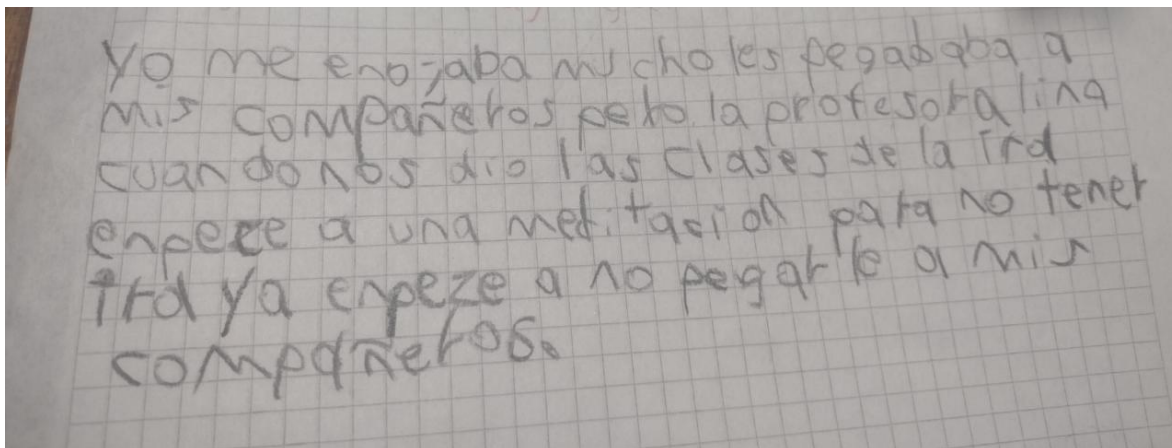 Yo me eno-jaba mucho les pegababa a
mis compañeros pero la profesora lina
cuando nos dio las clases de la ira
enpece a una meditasion para no tener
ira ya enpeze a no pegarle a mis
compañeros.